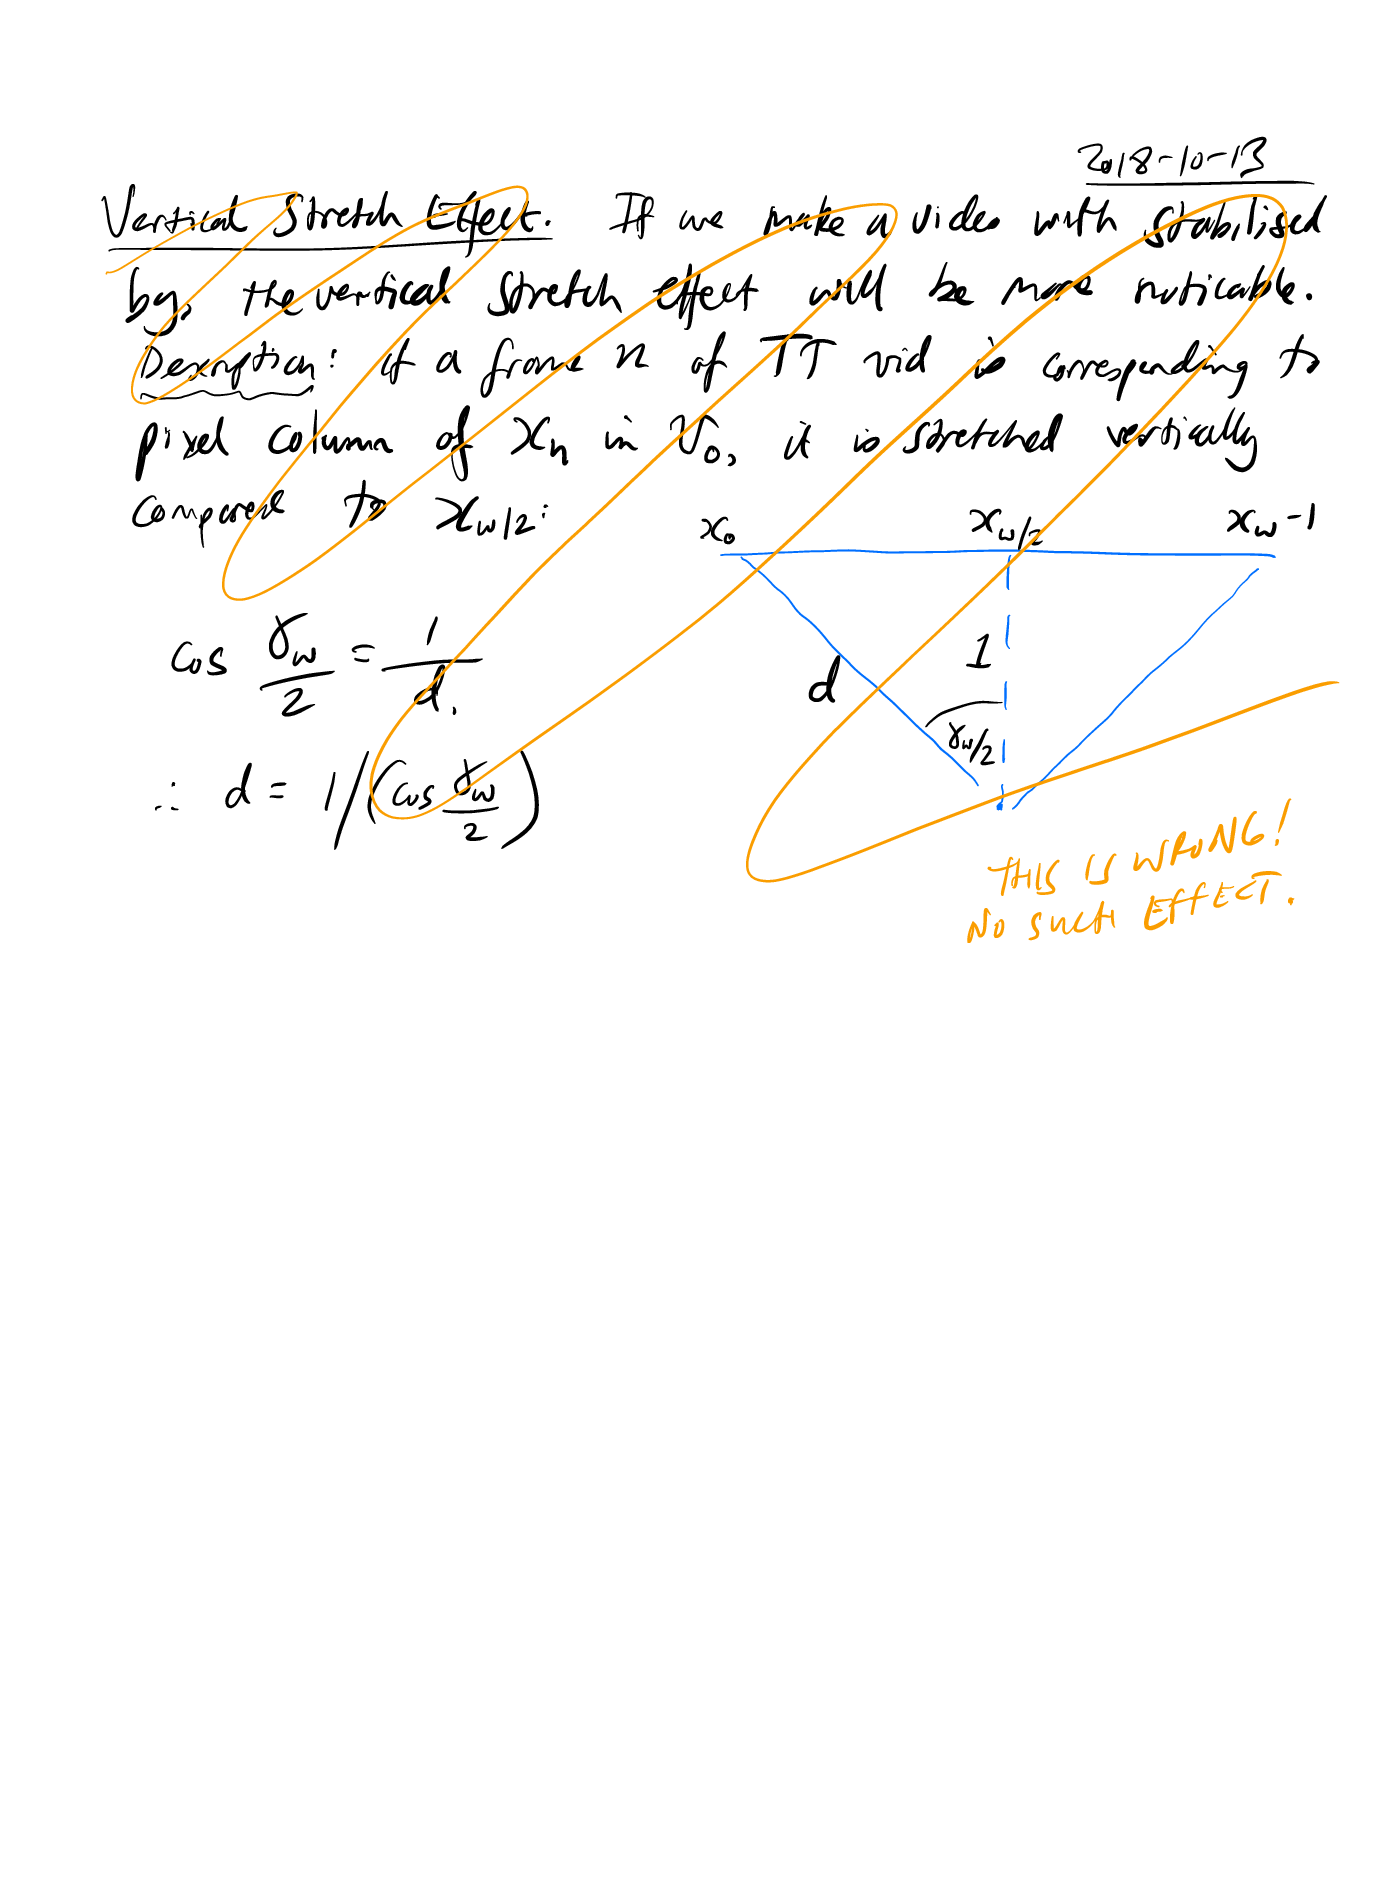 2018-10-13
Vertical Stretch Effect. If we make a video with stabilised
by, the vertical stretch effect will be more noticable.
Description: if a frame n of TT vid is corresponding to
pixel column of xₙ in V₀, it is stretched vertically
compared to x_w/2:
x₀ x_w/2 x_w-1
cos γ_w/2 = 1/d.
1
d
γ_w/2
∴ d = 1/(cos γ_w/2)
THIS IS WRONG!
NO SUCH EFFECT.